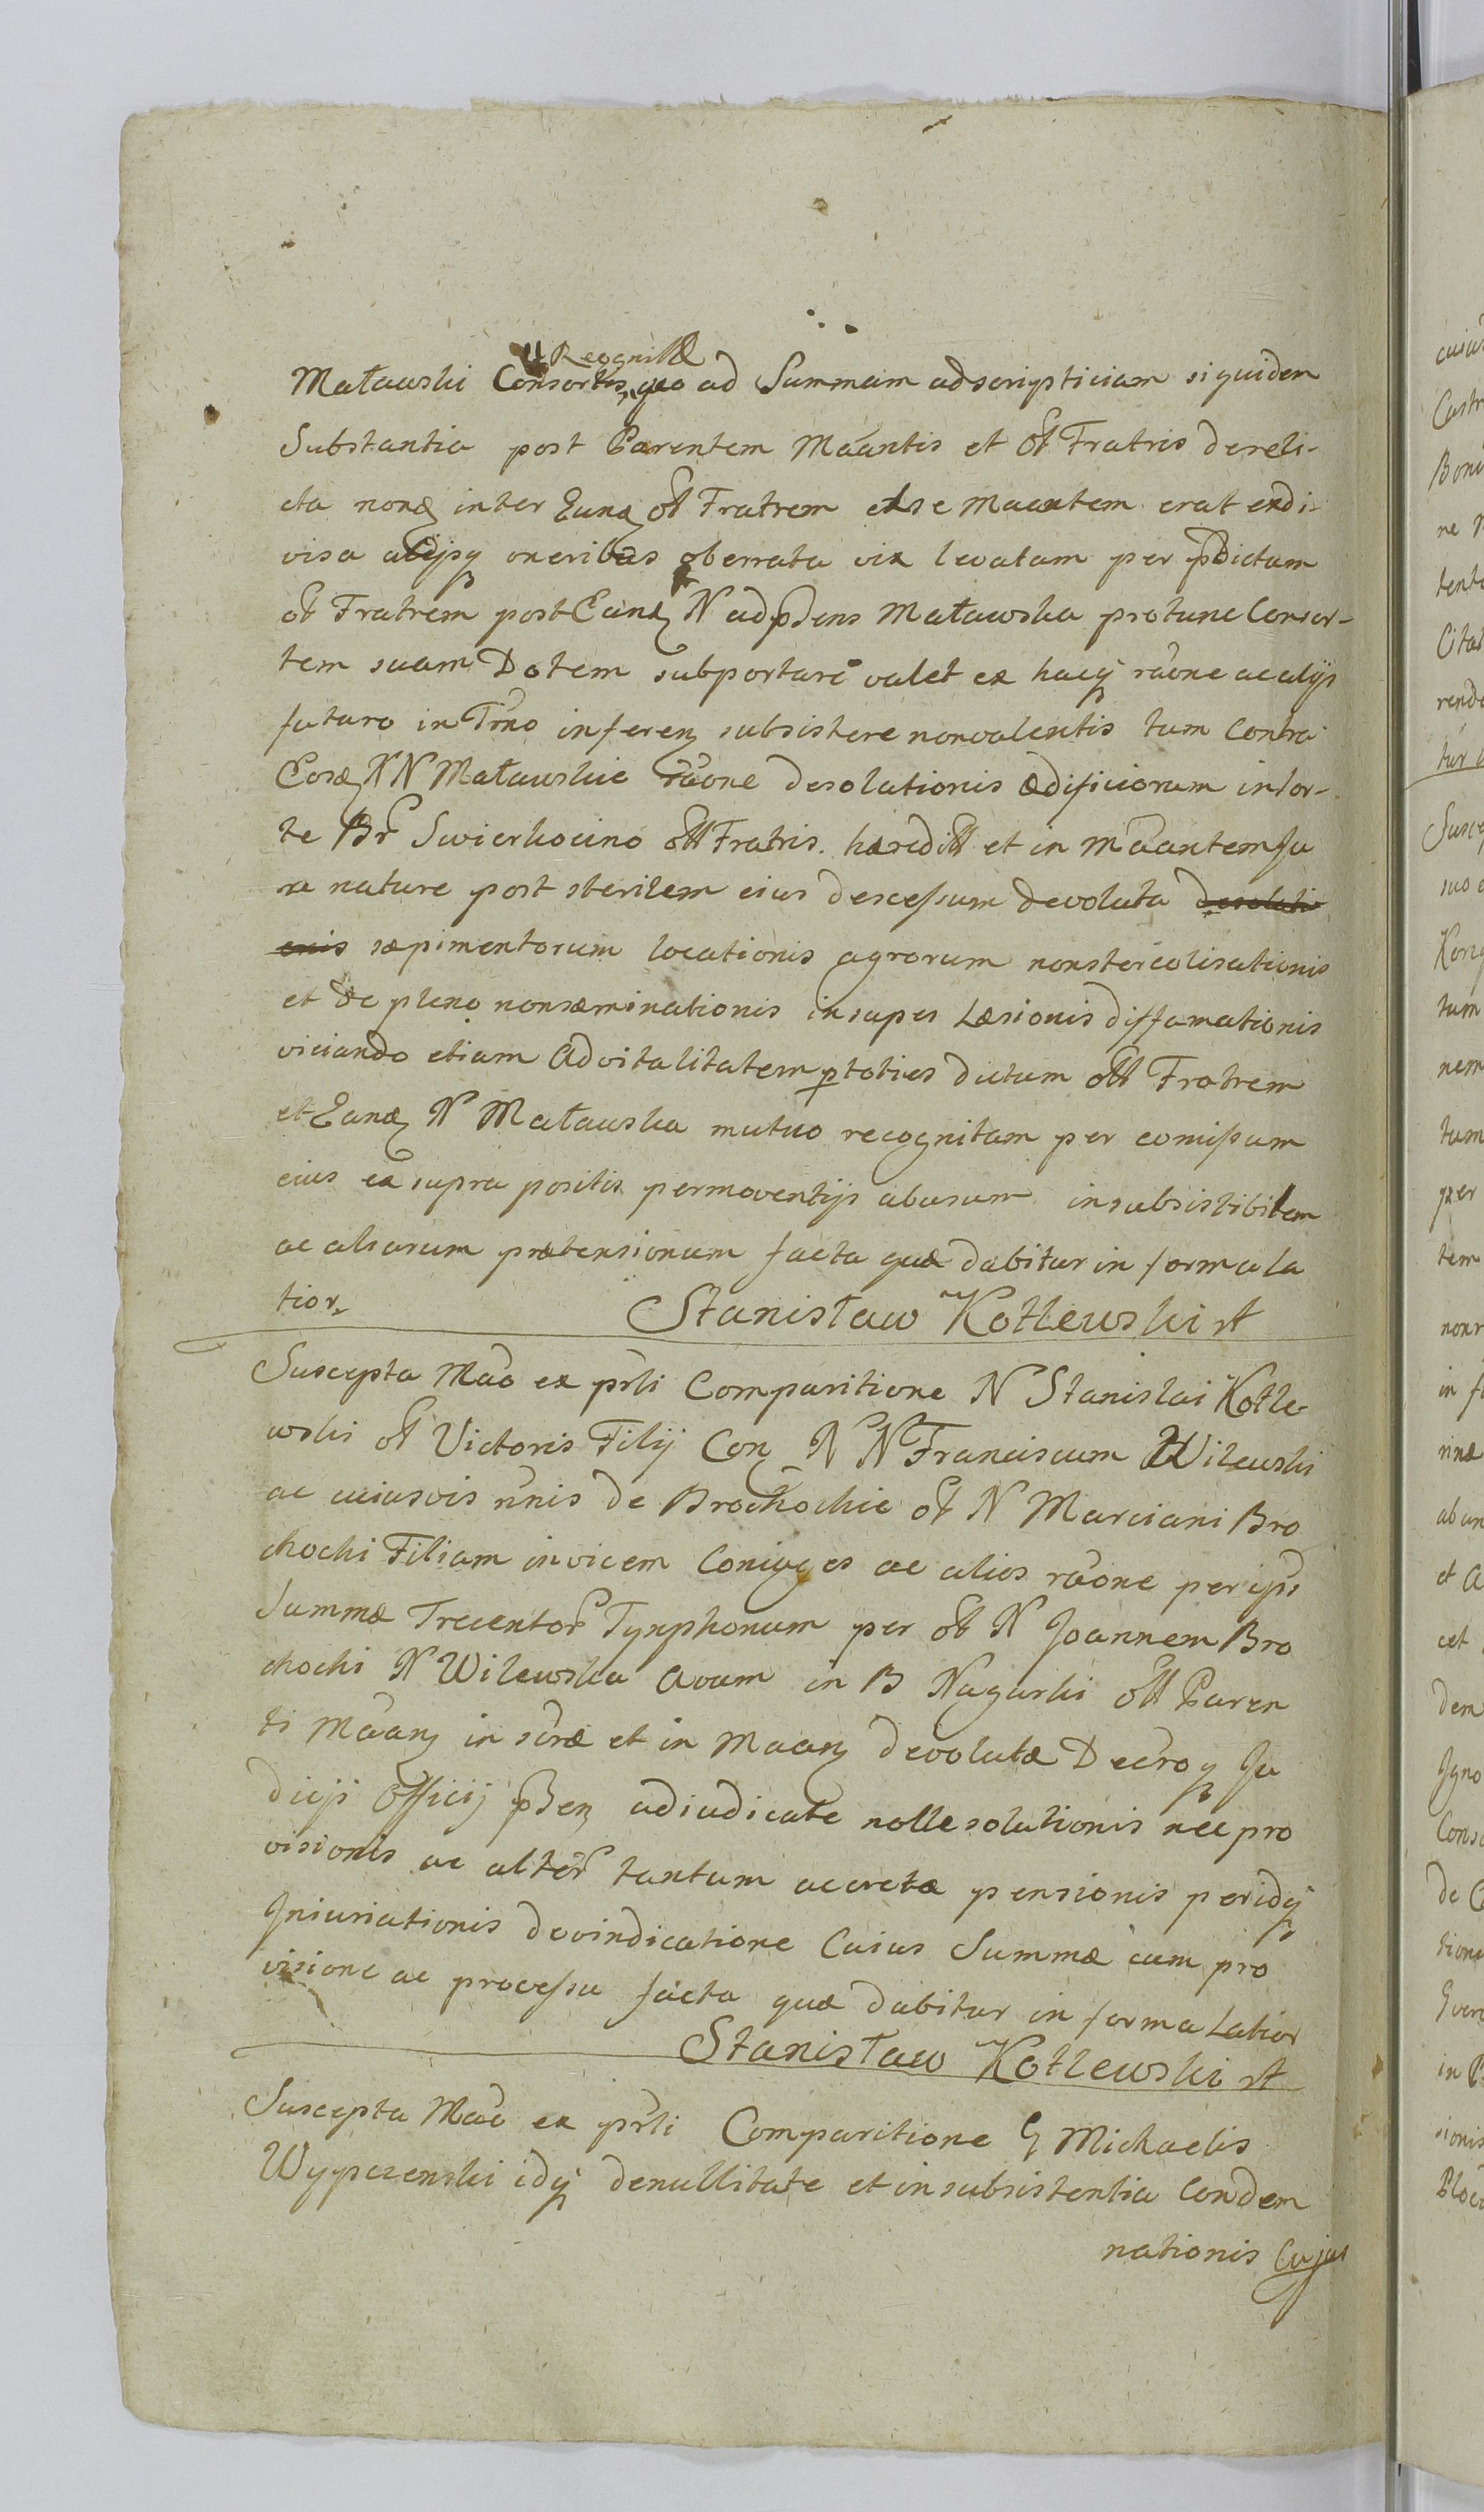 Recognitæ
Maławski Consortis, quo ad Summam adscripticiam siquidem
Substantia post Parentem Maantis et ol Fratris dereli-
cta nonq inter Eunq ol Fratrem et se Maantem erat endi-
visa alijsq oneribus oberrata vix levatam per pdictum
ol Fratrem post Eanq N ad pdens Maławska protunc Consor-
tem suam Dotem subportare valet ex hacq raone ac alijs
futuro in Tmo inferen subsistere nonvalentis tum Contra
Eosq N N Maławskie raone desolationis ædificiorum in sor-
te Br Swierkocino oll Fratris hæredi et in Maantem Ju
re nature post sterilem eius descessum devoluta desolati
onis sæpimentorum locationis agrorum nonstercolisationis
et de pleno nonseminationis insuper Læsionis diffamationis
viciando etiam Advitalitatem p toties dictum oll Fratrem
et Eanq N Maławska mutuo recognitam per comissum
eius ex supra positis permoventijs abusum insubsistibilem
ac aliarum prætensionum facta quæ dabitur in forma la
tior.
Stanisław Kotlewski
Suscepta Mao ex prli Comparitione N Stanislai Kotle
wski ol Victoris Filij Con N N Franciscum Wilewski
ac cuiusvis nnis de Brochockie ol N Marciani Bro
chocki Filiam invicem Coniuges ac alios raone per ips
Summæ Trecentor Tynphonum per ol N Joannem Bro
chocki N Wilewska Avum in B Nagurki oll Paren
ti Maan in scræ et in Maan devolutæ Decroq Ju
dicij Officij pden adiudicate nolle solutionis nec pro
visionis ac alter tantum accretæ pensionis per idq
Iniuriationis devindicatione Cuius Summæ cum pro
visione ac processu facta quæ dabitur in forma Latior
Stanisław Kotlewski
Suscepta Mao ex prli Comparitione G Michaelis
Wypczenski idq de nullitate et insubsistentia Condem
nationis Cujus